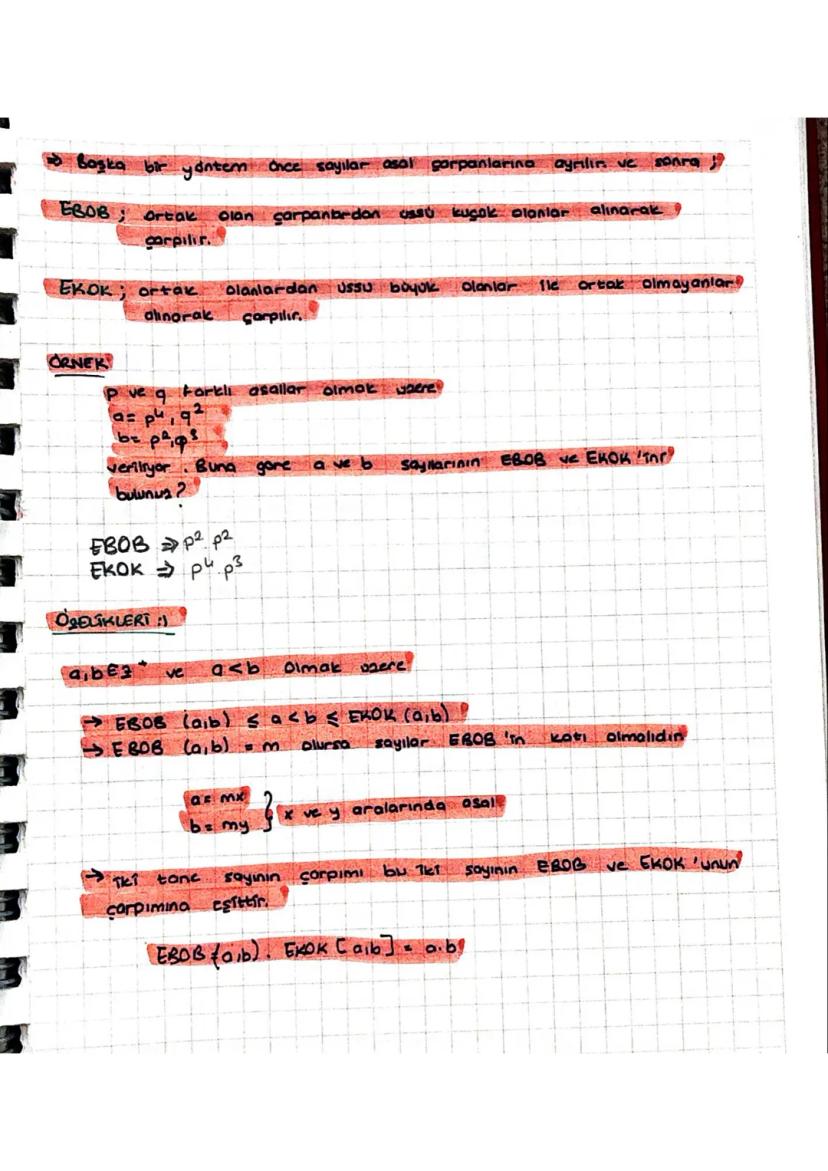 ⇒ Başka bir yöntem önce sayılar asal çarpanlarına ayrılır ve sonra ;
EBOB ; ortak olan çarpanlardan üssü küçük olanlar alınarak
çarpılır.
EKOK ; ortak olanlardan üssü büyük olanlar ile ortak olmayanlar
alınarak çarpılır.
ÖRNEK
p ve q farklı asallar olmak üzere
a = p⁴, q²
b = p², q³
veriliyor. Buna göre a ve b sayılarının EBOB ve EKOK'ini
bulunuz?
EBOB ⇒ p². p²
EKOK ⇒ p⁴ p³
ÖZELİKLERİ :)
a,b∈z⁺ ve a<b olmak üzere
→ EBOB (a,b) ≤ a < b ≤ EKOK (a,b)
→ EBOB (a,b) = m olursa sayılar EBOB'in katı olmalıdır
a = mx
b = my } x ve y aralarında asal
→ iki tane sayının çarpımı bu iki sayının EBOB ve EKOK'unun
çarpımına eşittir.
EBOB (a,b). EKOK [a,b] = a.b